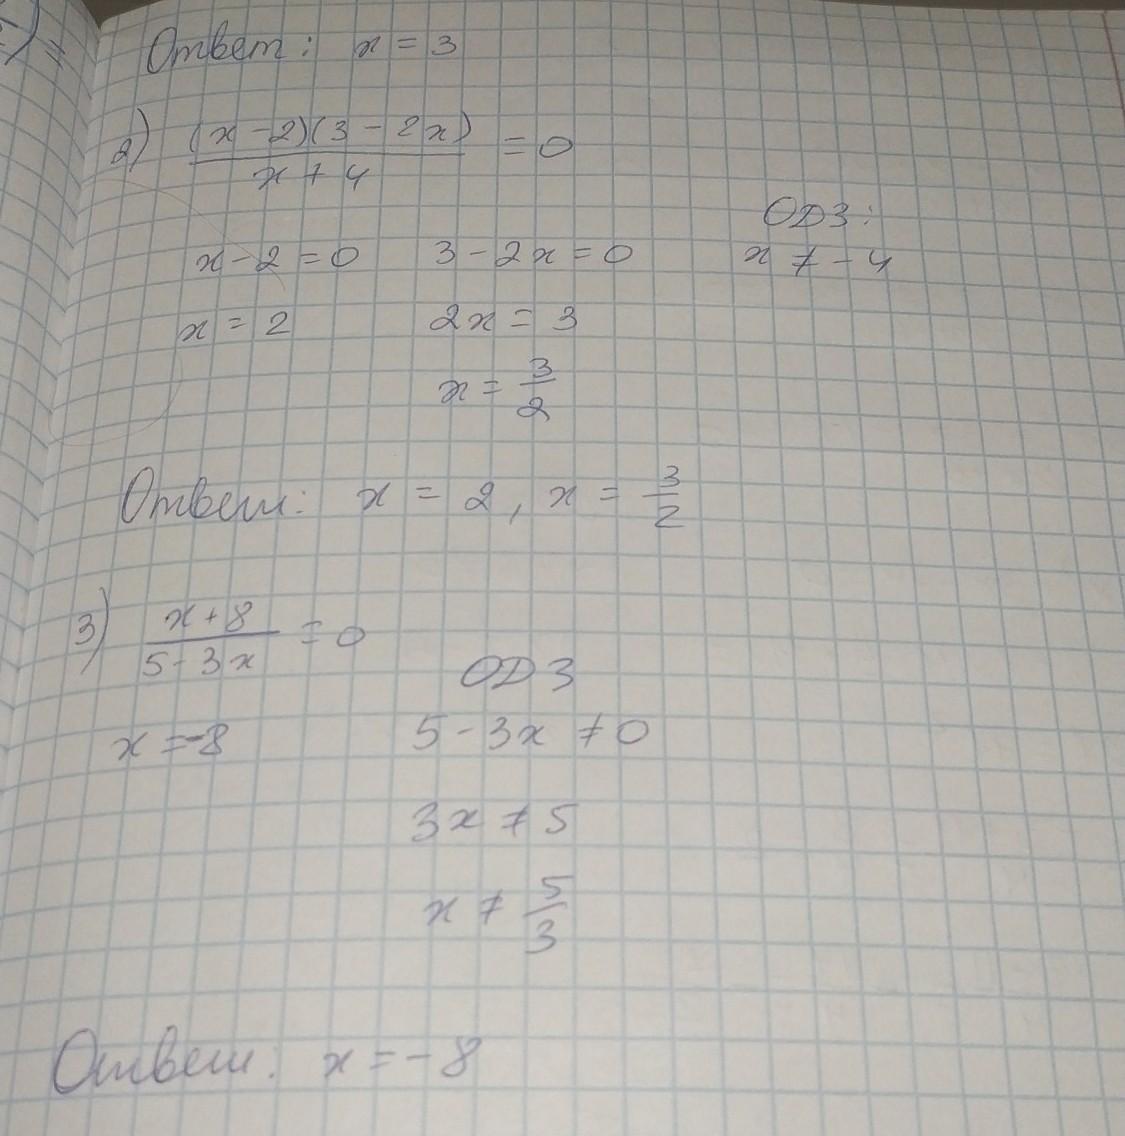 Ответ: x = 3
2) (x - 2)(3 - 2x) / x + 4 = 0
ОДЗ:
x - 2 = 0 3 - 2x = 0 x ≠ - 4
x = 2 2x = 3
x = 3/2
Ответ: x = 2, x = 3/2
3) x + 8 / 5 - 3x = 0
ОДЗ
x = -8 5 - 3x ≠ 0
3x ≠ 5
x ≠ 5/3
Ответ: x = - 8